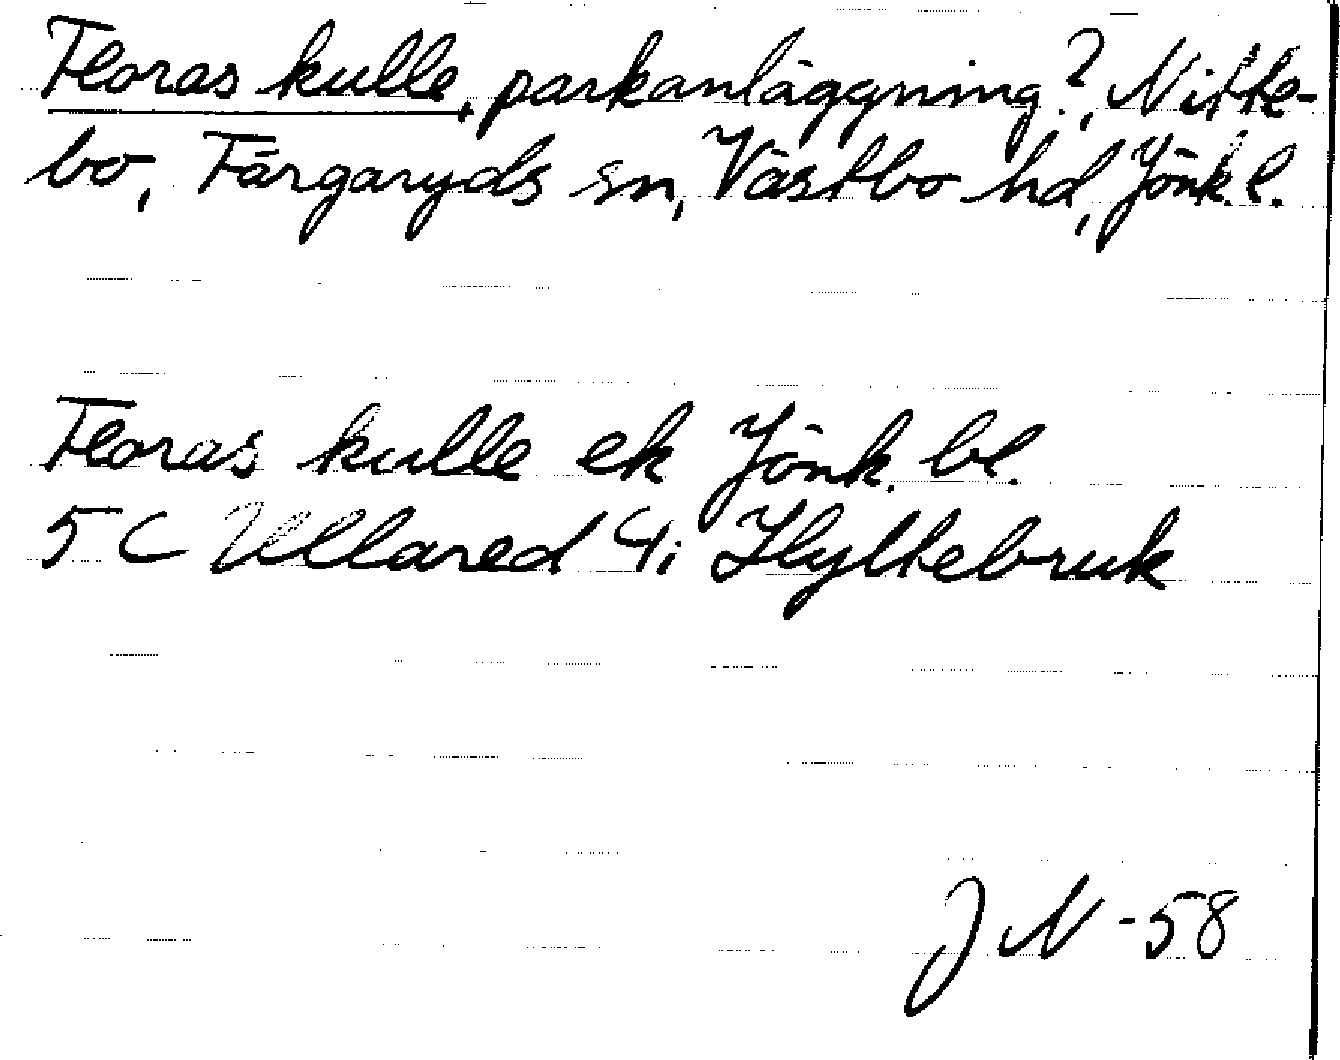 Floras kulle, parkanläggning?, Nitte-
bo, Färgaryds sn, Västbo hd, Jönk. l.
Floras kulle ek Jönk. bl.
5 C Ullared 4i Hyltebruk
J N -58